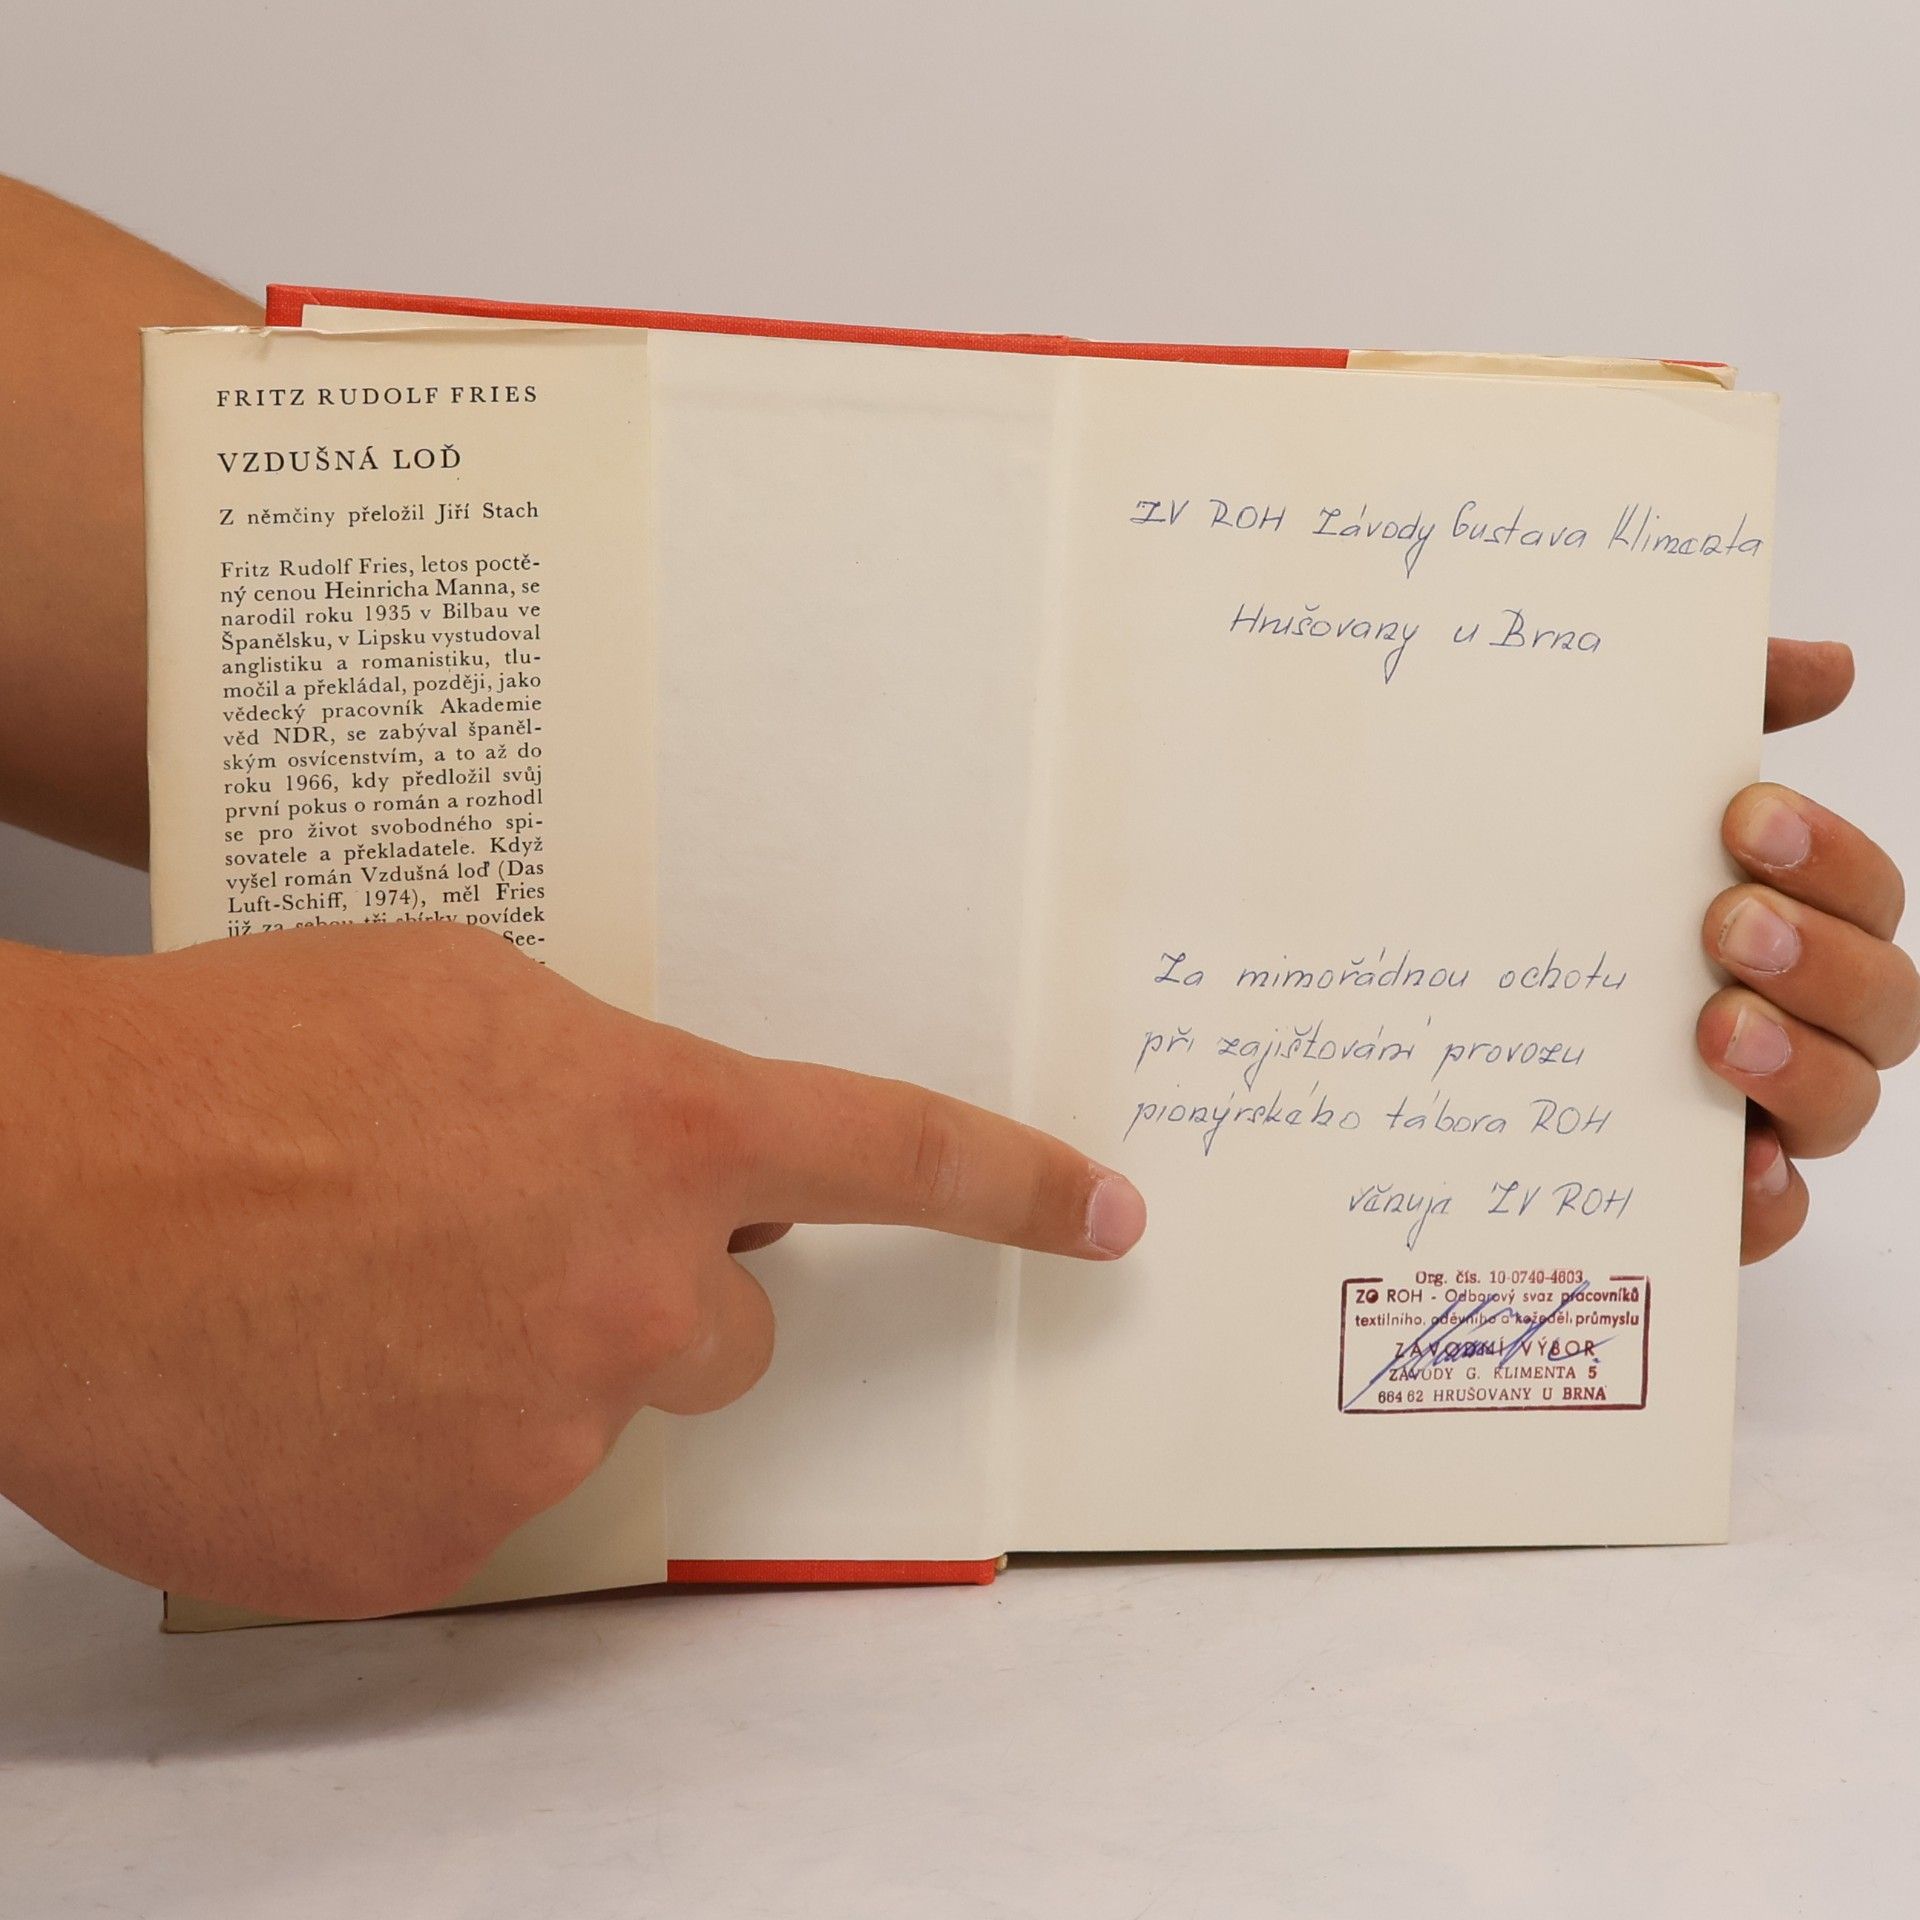 FRITZ RUDOLF FRIES
VZDUŠNÁ LOĎ
Z němčiny přeložil Jiří Stach
Fritz Rudolf Fries, letos poctě-
ný cenou Heinricha Manna, se
narodil roku 1935 v Bilbau ve
Španělsku, v Lipsku vystudoval
anglistiku a romanistiku, tlu-
močil a překládal, později, jako
vědecký pracovník Akademie
věd NDR, se zabýval španěl-
ským osvícenstvím, a to až do
roku 1966, kdy předložil svůj
první pokus o román a rozhodl
se pro život svobodného spi-
sovatele a překladatele. Když
vyšel román Vzdušná loď (Das
Luft-Schiff, 1974), měl Fries
již za sebou tři sbírky povídek
See-
ZV ROH Závody Gustava Klimenta
Hrušovany u Brna
Za mimořádnou ochotu
při zajišťování provozu
pionýrského tábora ROH
věnuje ZV ROH
Org. čís. 10-0740-4603
ZO ROH - Odborový svaz pracovníků
textilního, oděvního a kožeděl. průmyslu
ZÁVODNÍ VÝBOR
ZÁVODY G. KLIMENTA 5
664 62 HRUŠOVANY U BRNA